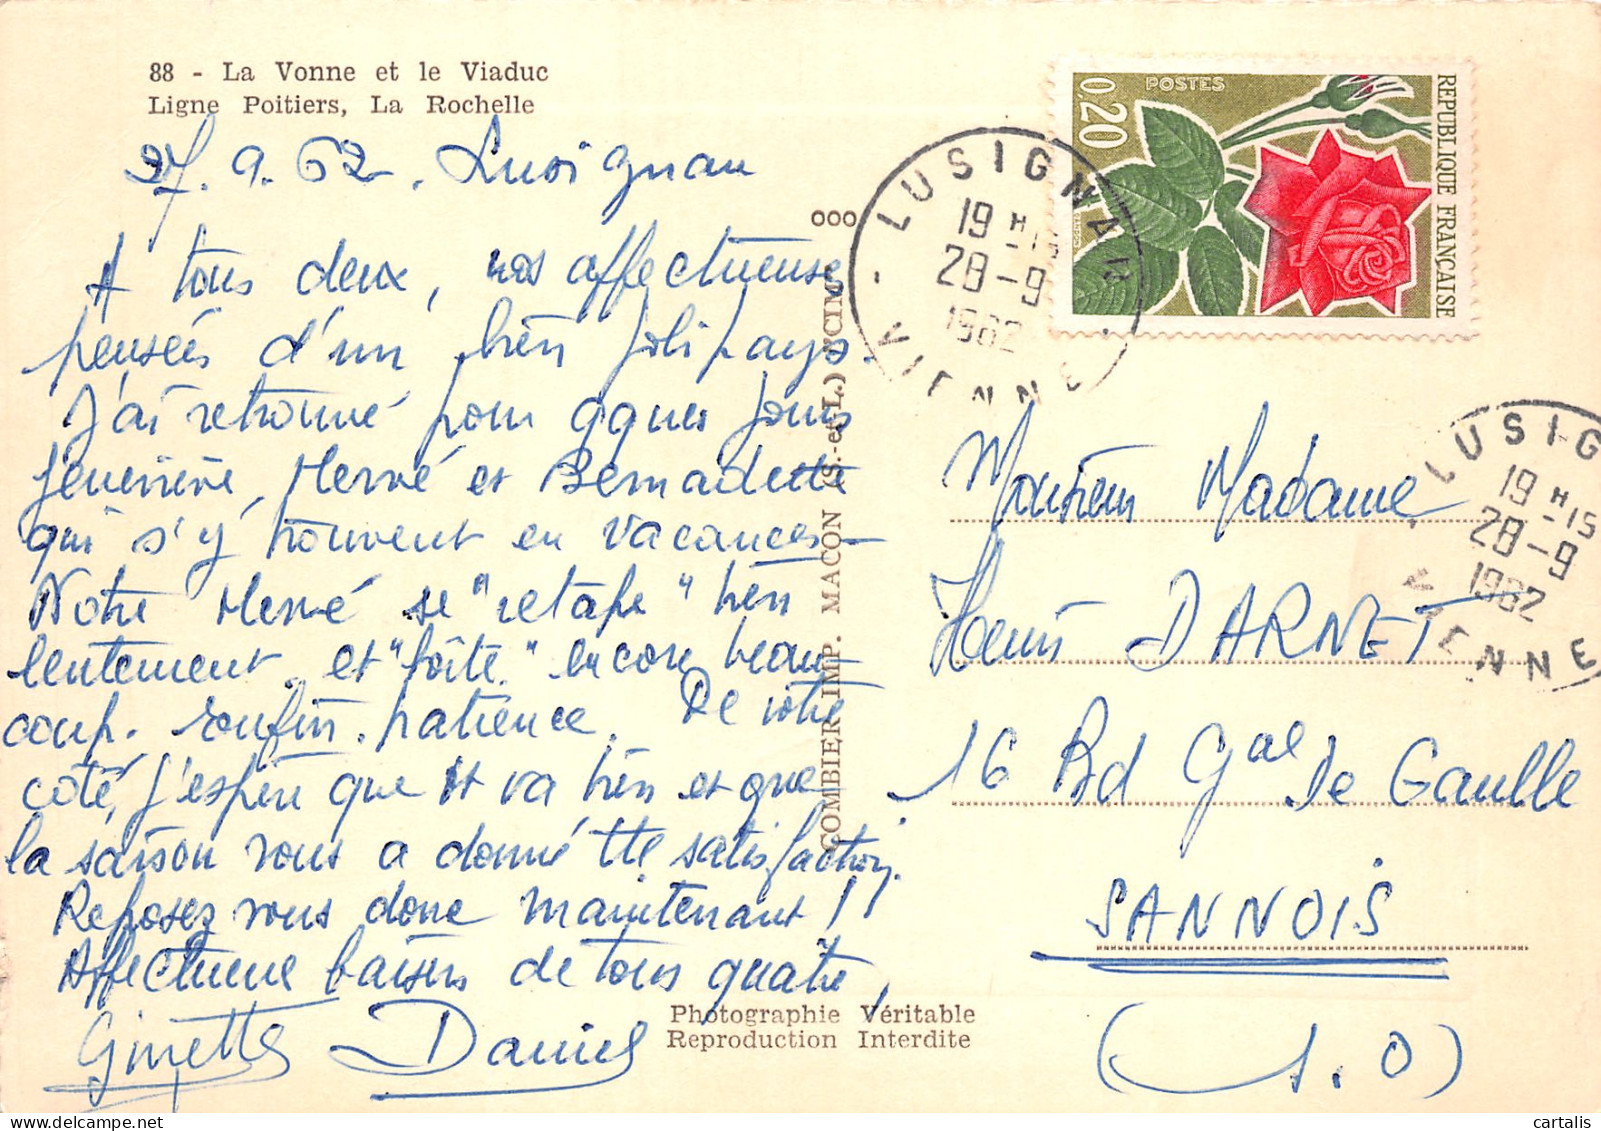 88 - La Vonne et le Viaduc
Ligne Poitiers, La Rochelle
27.9.62. Lusignan
A tous deux, nos affectueuses
pensées d'un bien joli pays.
J'ai retrouvé pour qques jours
Geneviève, Hervé et Bernadette
qui s'y trouvent en vacances -
Notre Hervé se "retape" bien
lentement et "boîte" encore beau-
coup. Enfin, patience. De votre
côté, j'espère que tt va bien et que
la saison vous a donné tte satisfaction.
Reposez vous donc maintenant !!
Affectueux baisers de tous quatre,
Ginette Daniel
Photographie Véritable
Reproduction Interdite
COMBIER IMP. MACON (S.-et-L.) "CIM"
ooo
POSTES
0,20
REPUBLIQUE FRANÇAISE
GANDON
LUSIGNAN
19 H -15
28 - 9
1962
VIENNE
LUSIG
19 H -15
28 - 9
1962
VIENNE
Monsieur Madame
Henri DARNET
16 Bd Gal De Gaulle
SANNOIS
(S.O)
cartalis